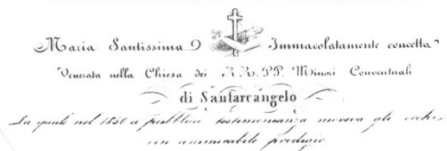 Maria Santissima Immacolatamente concetta
Venerata nella Chiesa dei RR. PP. Minori Conventuali
di Santarcangelo
La quale nel 1850 a pubblica testimonianza moveva gli occhi
con ammirabile prodigio